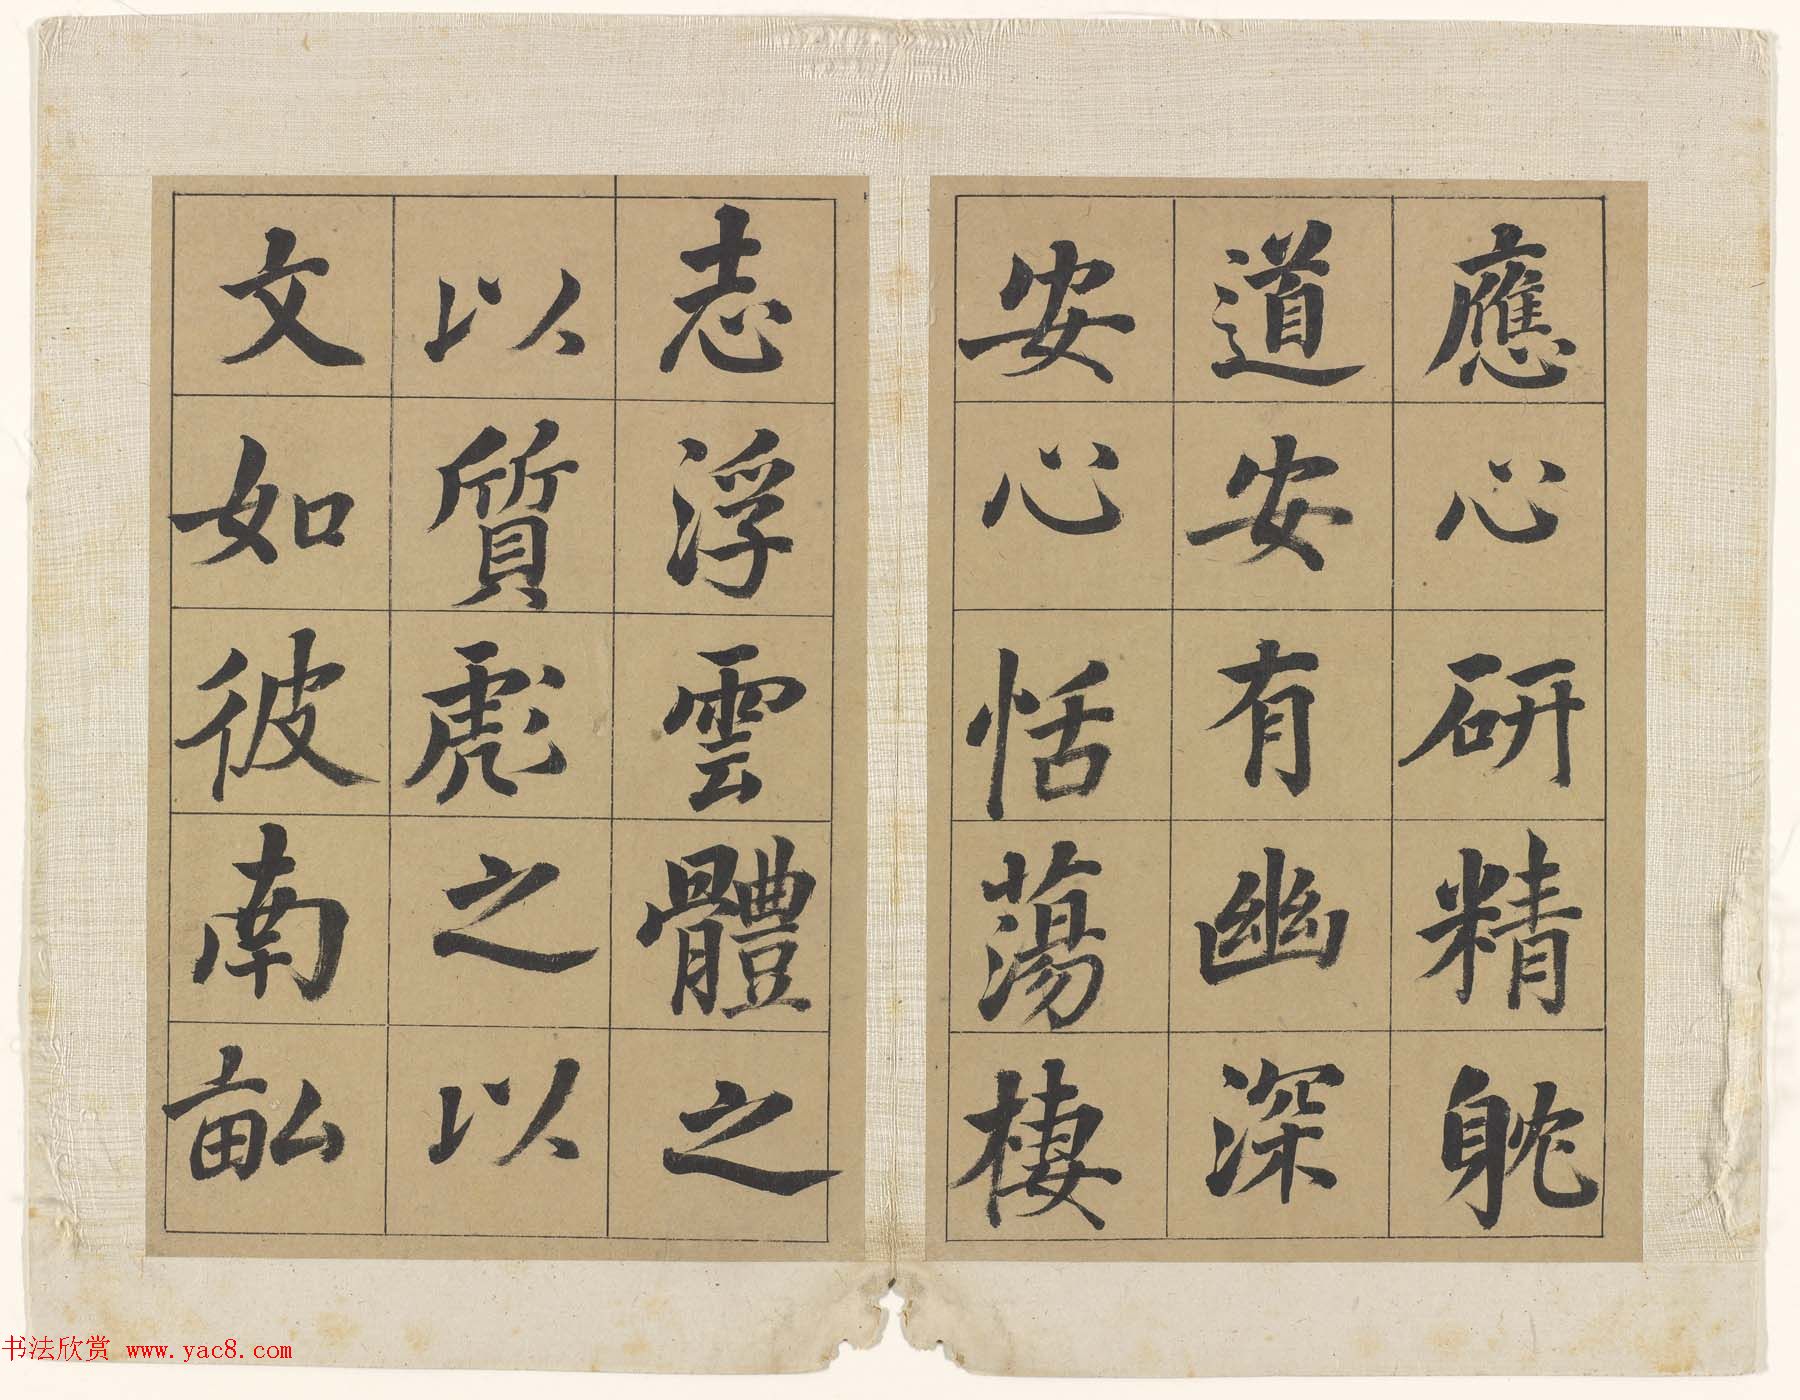 應心研精躭
道安有幽深
安心恬蕩棲
志浮雲體之
以質彪之以
文如彼南畝
书法欣赏 www.yac8.com